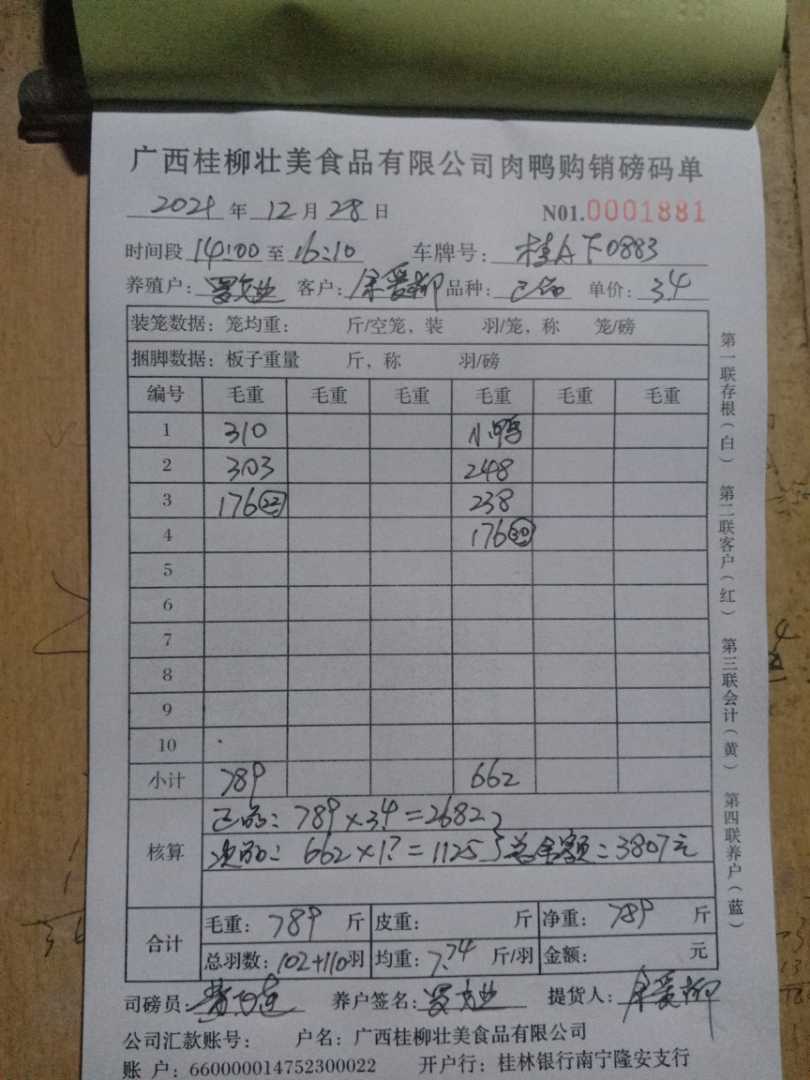 广西桂柳壮美食品有限公司肉鸭购销磅码单
2021 年 12 月 28 日 N01.0001881
时间段 14:00 至 16:10 车牌号: 桂A下0883
养殖户: 客户: 余爱柳 品种: 正品 单价: 3.4
装笼数据: 笼均重: 斤/空笼, 装 羽/笼, 称 笼/磅
捆脚数据: 板子重量 斤, 称 羽/磅
编号 毛重 毛重 毛重 毛重 毛重 毛重
1 310 小鸭
2 303 248
3 176 22 238
4 176 30
5
6
7
8
9
10
小计 789 662
核算 正品: 789×3.4=2682
次品: 662×1.7=1125 总金额: 3807元
合计 毛重: 789 斤 皮重: 斤 净重: 789 斤
总羽数: 102+110羽 均重: 7.74 斤/羽 金额: 元
司磅员: 养户签名: 提货人: 余爱柳
公司汇款账号: 户名: 广西桂柳壮美食品有限公司
账 户: 660000014752300022 开户行: 桂林银行南宁隆安支行
第一联存根(白) 第二联客户(红) 第三联会计(黄) 第四联养户(蓝)